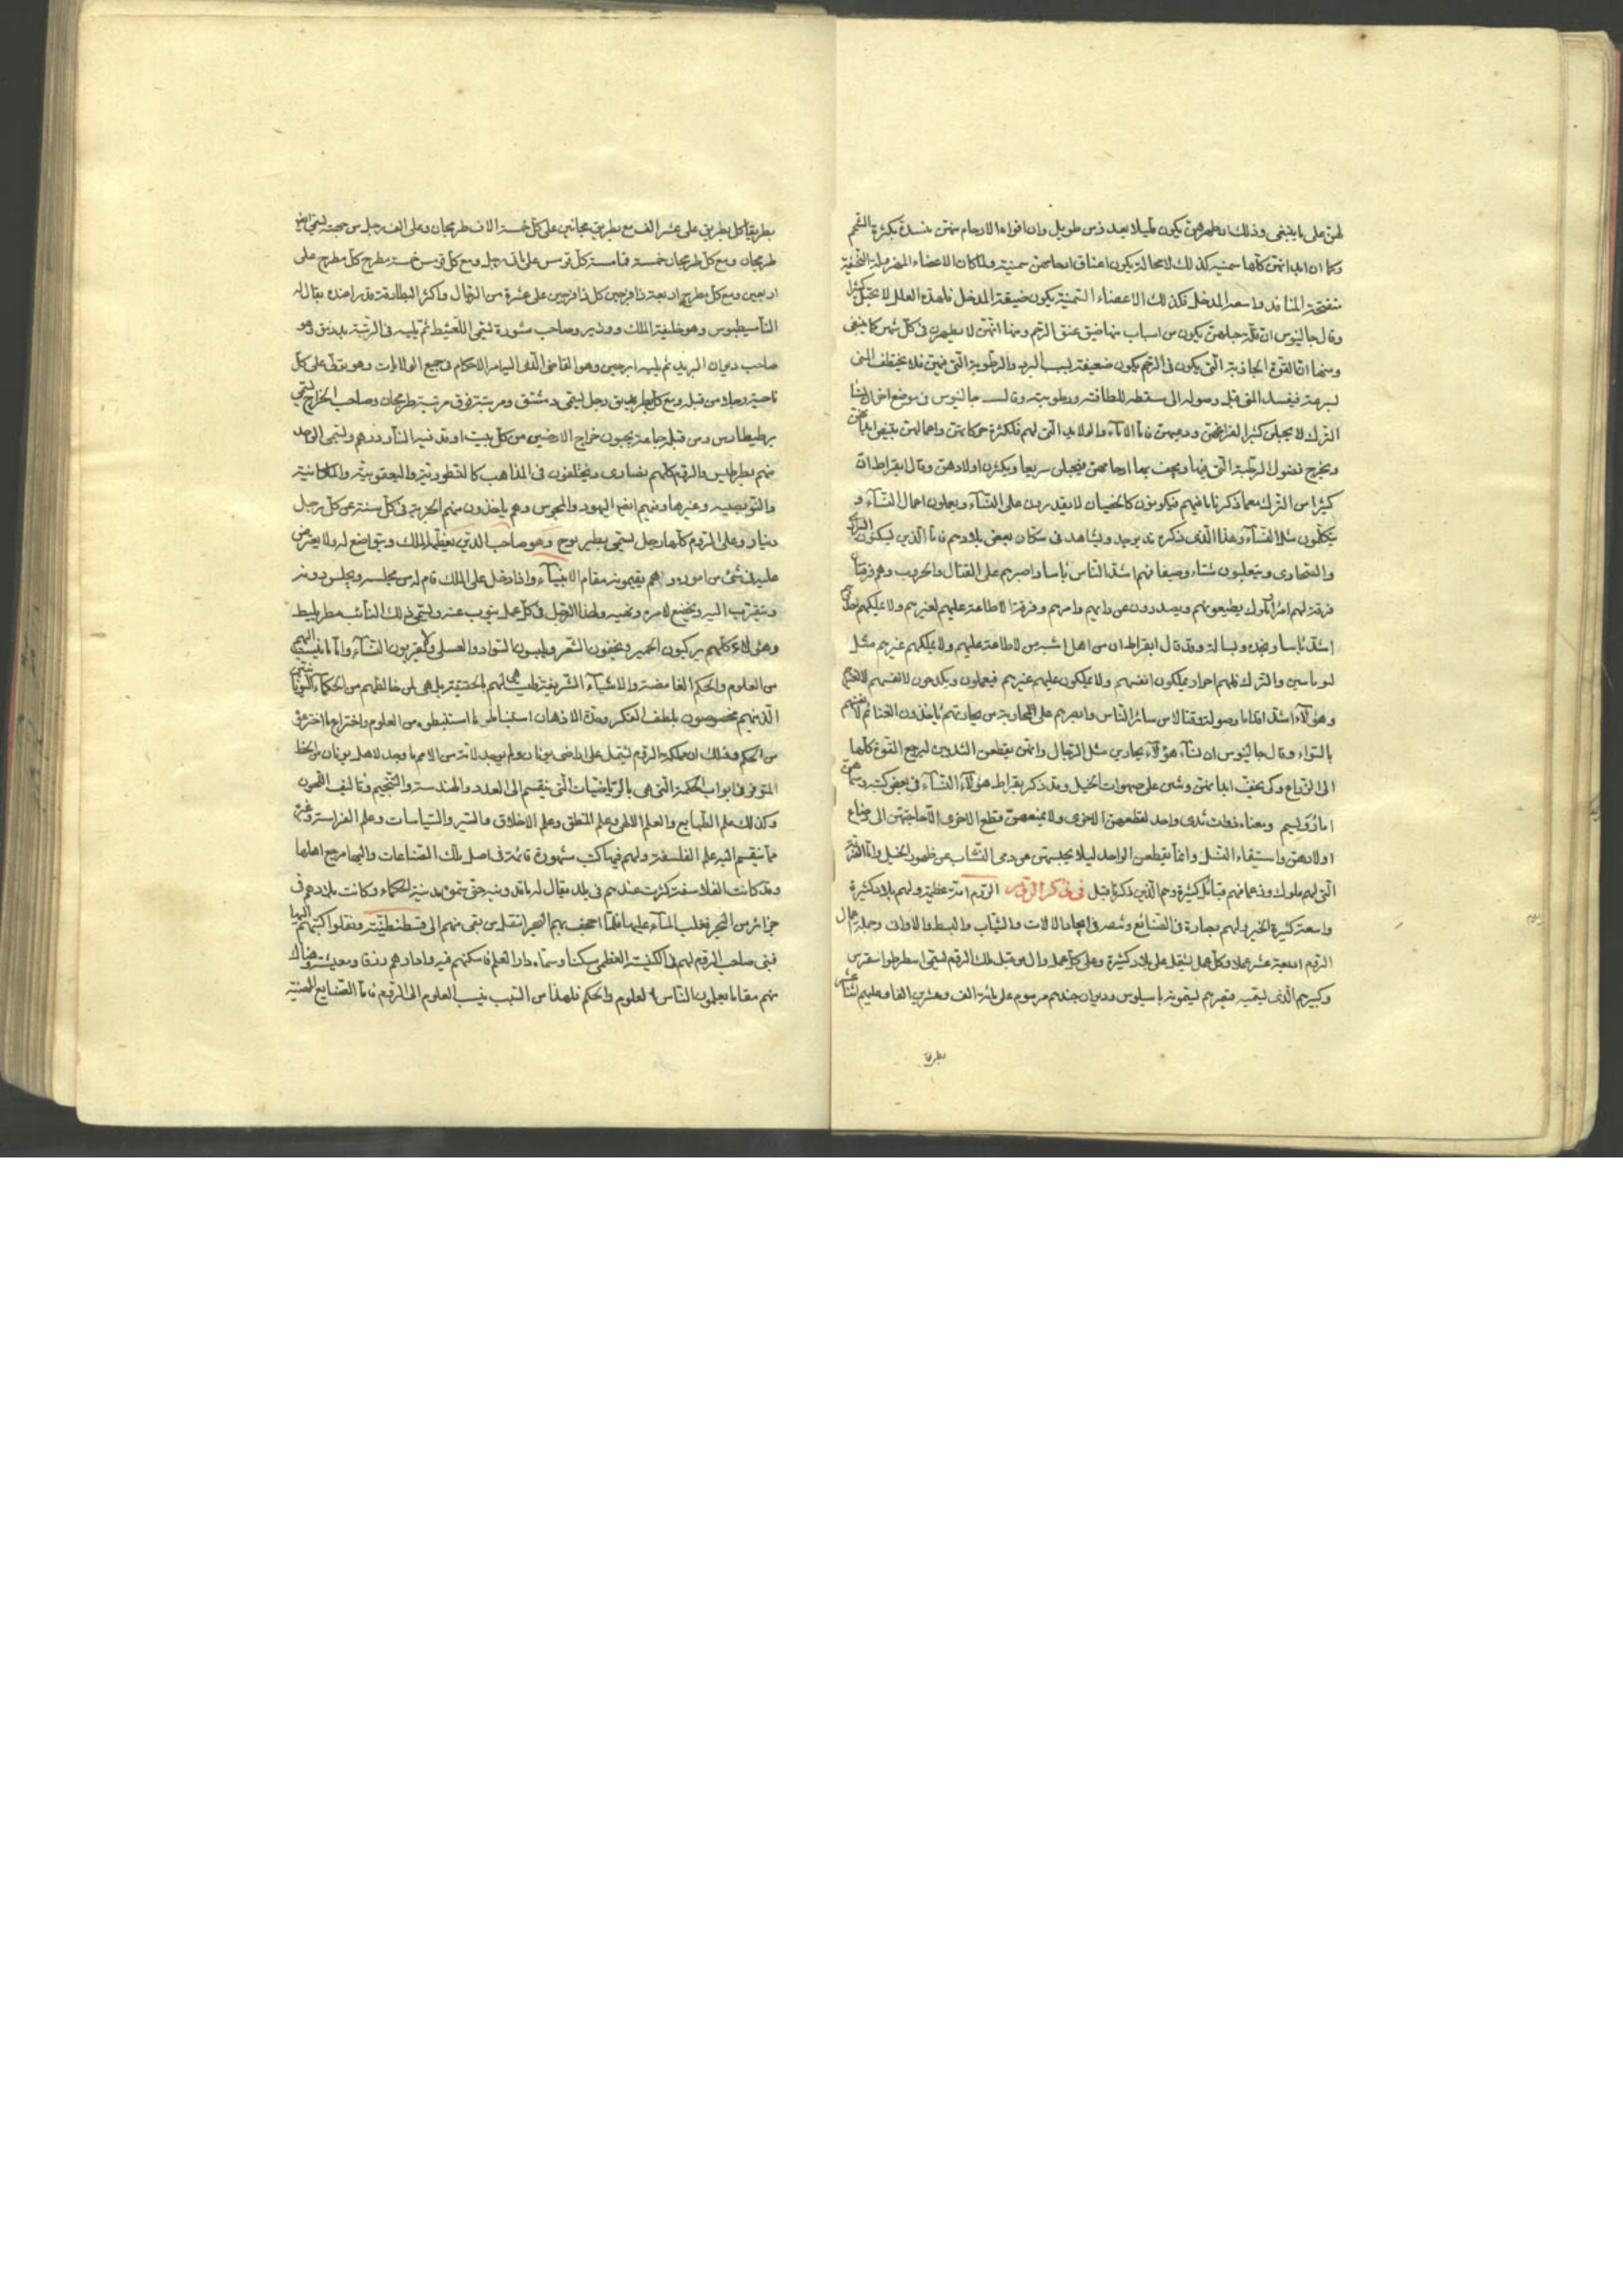 لهن على ما ينبغى وذلك ان طمثهن يكون قليلا بعد زمن طويل وان افواه الارحام منهن منسدة بكثرة الشحم
وكما ان ابدانهن كلها سمينة كذلك لا محالة يكون اعناق ارحامهن سمينة ولما كان الاعضاء المهزولة النحيفة
منفتحة المنافذ واسعة المدخل فكذلك الاعضاء السمينة يكون ضيقة المدخل فلهذه العلل لا يحبلن كثيرا
وقال جالينوس ان قلة حبلهن يكون من اسباب منها ضيق عنق الرحم ومنها انهن لا يطهرن فى كل شهر كما ينبغى
ومنها ان القوة الجاذبة التى يكون فى الرحم يكون ضعيفة لسبب البرد والرطوبة التى فيهن فلا يختطف المنى
لسرعة فيفسد المنى قبل وصوله الى مسقطه للطافته ورطوبته وقال جالينوس فى موضع اخر ان نساء
الترك لا يحبلن كثيرا لفراغهن ودعتهن فاما الاماء والولايد التى لهم فلكثرة حركاتهن واعمالهن ينتفى ابدانهن
ويخرج فضول الرطبة التى فيها ويجف بها ارحامهن فيحبلن سريعا ويكثرن اولادهن وقال ابقراط ان
كثيرا من الترك مع ما ذكرنا ما فيهم فيكونون كالخصيان لا يقدرون على النساء ويعملون اعمال النساء و
يتكلمون مثل النساء وهذا الذى ذكره قد يوجد ويشاهد فى سكان بعض بلادهم فاما الذين يسكنون البرارى
والصحارى وينقلبون شتاء وصيفا فهم اشد الناس بأسا واصبرهم على القتال والحروب وهم فرقتان
فرقة لهم امراء وملوك يطيعونهم ويصدرون عن رايهم وامرهم وفرقة لا طاعة عليهم لغيرهم ولا يملكهم احد
اشد بأسا ونجدة وبسالة وقد قال ابقراط ان من اهل اشيه من لا طاعة عليهم ولا يملكهم غيرهم مثل
لوباسين والترك فانهم احرار يملكون انفسهم ولا يملكون عليهم غيرهم فيعملون ويكدحون لانفسهم لا لغيرهم
وهؤلاء اشد اقداما وصولة وقتالا من سائر الناس واصبرهم على المحاربة من عادتهم يأخذون الغنائم لانفسهم
بالسواء وقال جالينوس ان نساء هؤلاء يحاربن مثل الرجال وانهن يقطعن الثديين ليرجع القوة كلها
الى الذراع وكى يخف ابدانهن وشبن على صهوات الخيل وقد ذكر بقراط هؤلاء النساء فى بعض كتبه وسماهن
امازونيسم ومعناه ذوات ثدى واحد لقطعهن الاخرى ولا يمنعهن قطع الاخرى الا حاجتهن الى رضاع
اولادهن واستبقاء النسل وانما يقطعن الواحد ليلا يحبسهن عن رمى النشاب عن ظهور الخيل واما الفرقة
التى لهم ملوك وزعما فهم قبائل كثيرة وهم الذين ذكرنا قبل فى ذكر الروم الروم امة عظيمة ولهم بلاد كثيرة
واسعة كثيرة الخير ولهم مهارة فى الصنائع وتصرف فى ايجاد الالات والثياب والبسط والاوانى وجملة اعمال
الروم اربعة عشر عملا وكل عمل يشتمل على بلاد كثيرة وعلى كل عمل وال من قبل ملك الروم يسمى اسطرطوا سقرس
وكبيرهم الذى يسميه قيصرهم يسمونه باسيلوس وديوان جندهم مرسوم على مائة الف وعشرين الفا وعليهم اثنا عشر
بطريقا
بطريقا كل بطريق على عشرة الف مع بطريق على كل خمسة الاف طرمجان وعلى الف رجل من جهته يسمى
طرمجان ومع كل طرمجان خمسة قمامسة كل قومس على رجل ومع كل قومس خمسة مطرح كل مطرح على
اربعين ومع كل مطرح اربعة ذافرجين كل ذافرجين على عشرة من الرجال واكثر البطارقة قدرا عنده يقال له
الناسيطبوس وهو خليفة الملك ووزيره وصاحب مشورة يسمى اللغثيط ثم يليه فى الرتبة وهو
صاحب ديوان البريد ثم يليه ابرجين وهو القاضى الذى اليه امر الاحكام فى جميع الولايات وهو يولى على كل
ناحية رجلا من قبله ومع كل بطريق رجل يسمى دمشق ومرتبته فوق مرتبة طرمجان وصاحب الخراج يسمى
برطيطارس ومن قبله جماعة يجبون خراج الارضين من كل بيت اوقد فيه النار درهم ويسمى الواحد
منهم بطرطيس والروم كلهم نصارى ويختلفون فى المذاهب كالنسطورية واليعقوبية والملكائية
وغيرها وفيهم ايضا اليهود والمجوس وهم يأخذون منهم الجزية فى كل سنة عن كل رجل
دينار وعلى الروم كلها رجل يسمى بطيربوح وهو صاحب الدين يعظمه الملك ويتواضع له ولا يعترض
عليه فى شئ من اموره وهم يقيمونه مقام الانبياء واذا دخل على الملك قام له من مجلسه ويجلس دونه
ويتقرب اليه ويخضع لامره ونهيه ولهذا الرجل فى كل عمل ينوب عنه ويسمى ذلك النائب مطرابليط
وهؤلاء كلهم يركبون الحمير ويخففون الشعر ويلبسون السواد والعسلى ولا يقربون النساء واما ما ينسب اليهم
من العلوم والحكم الغامضة والاشياء الشريفة فليست هى لهم بالحقيقة بل هى لمن خالطهم من الحكماء اليونانيين
الذين هم مخصوصون بلطف الفكر وحدة الاذهان استنباط ما استنبطوه من العلوم واختراع ما اخترعوه
من الحكم وذلك ان مملكة الروم تشتمل على اراضى يونان ولم يوجد لامة من الامم ما وجد لاهل يونان من الحظ
المتوفر فى ابواب الحكمة التى هى بالرياضيات التى ينقسم الى العدد والهندسة والتنجيم وتأليف اللحون
وكذلك علم الطبايع والعلم الالهى وعلم المنطق وعلم الاخلاق والسير والسياسات وعلم الفراسة وغيرها
مما ينقسم اليه علم الفلسفة ولهم فيها كتب مشهورة قائمة فى اصل تلك الصناعات واليها مرجع اهلها
وقد كانت الفلاسفة كثرت عندهم فى بلد يقال له ماقدونيه حتى سموه مدينة الحكماء وكانت بلادهم فى
جزائر من البحر فغلب الماء عليها فلما اجحف بهم البحر انتقل من بقى منهم الى قسطنطنية ونقلوا كتبهم اليها
فبنى صاحب الروم لهم فى الكنيسة العظمى سكنا وسماه دار العلم فاسكنهم فيه وادار لهم رزقا ومعيشة وهناك
منهم مقاما يعلمون الناس العلوم والحكم فلهذا من السبب ينسب العلوم الى الروم فاما الصنايع المهنية